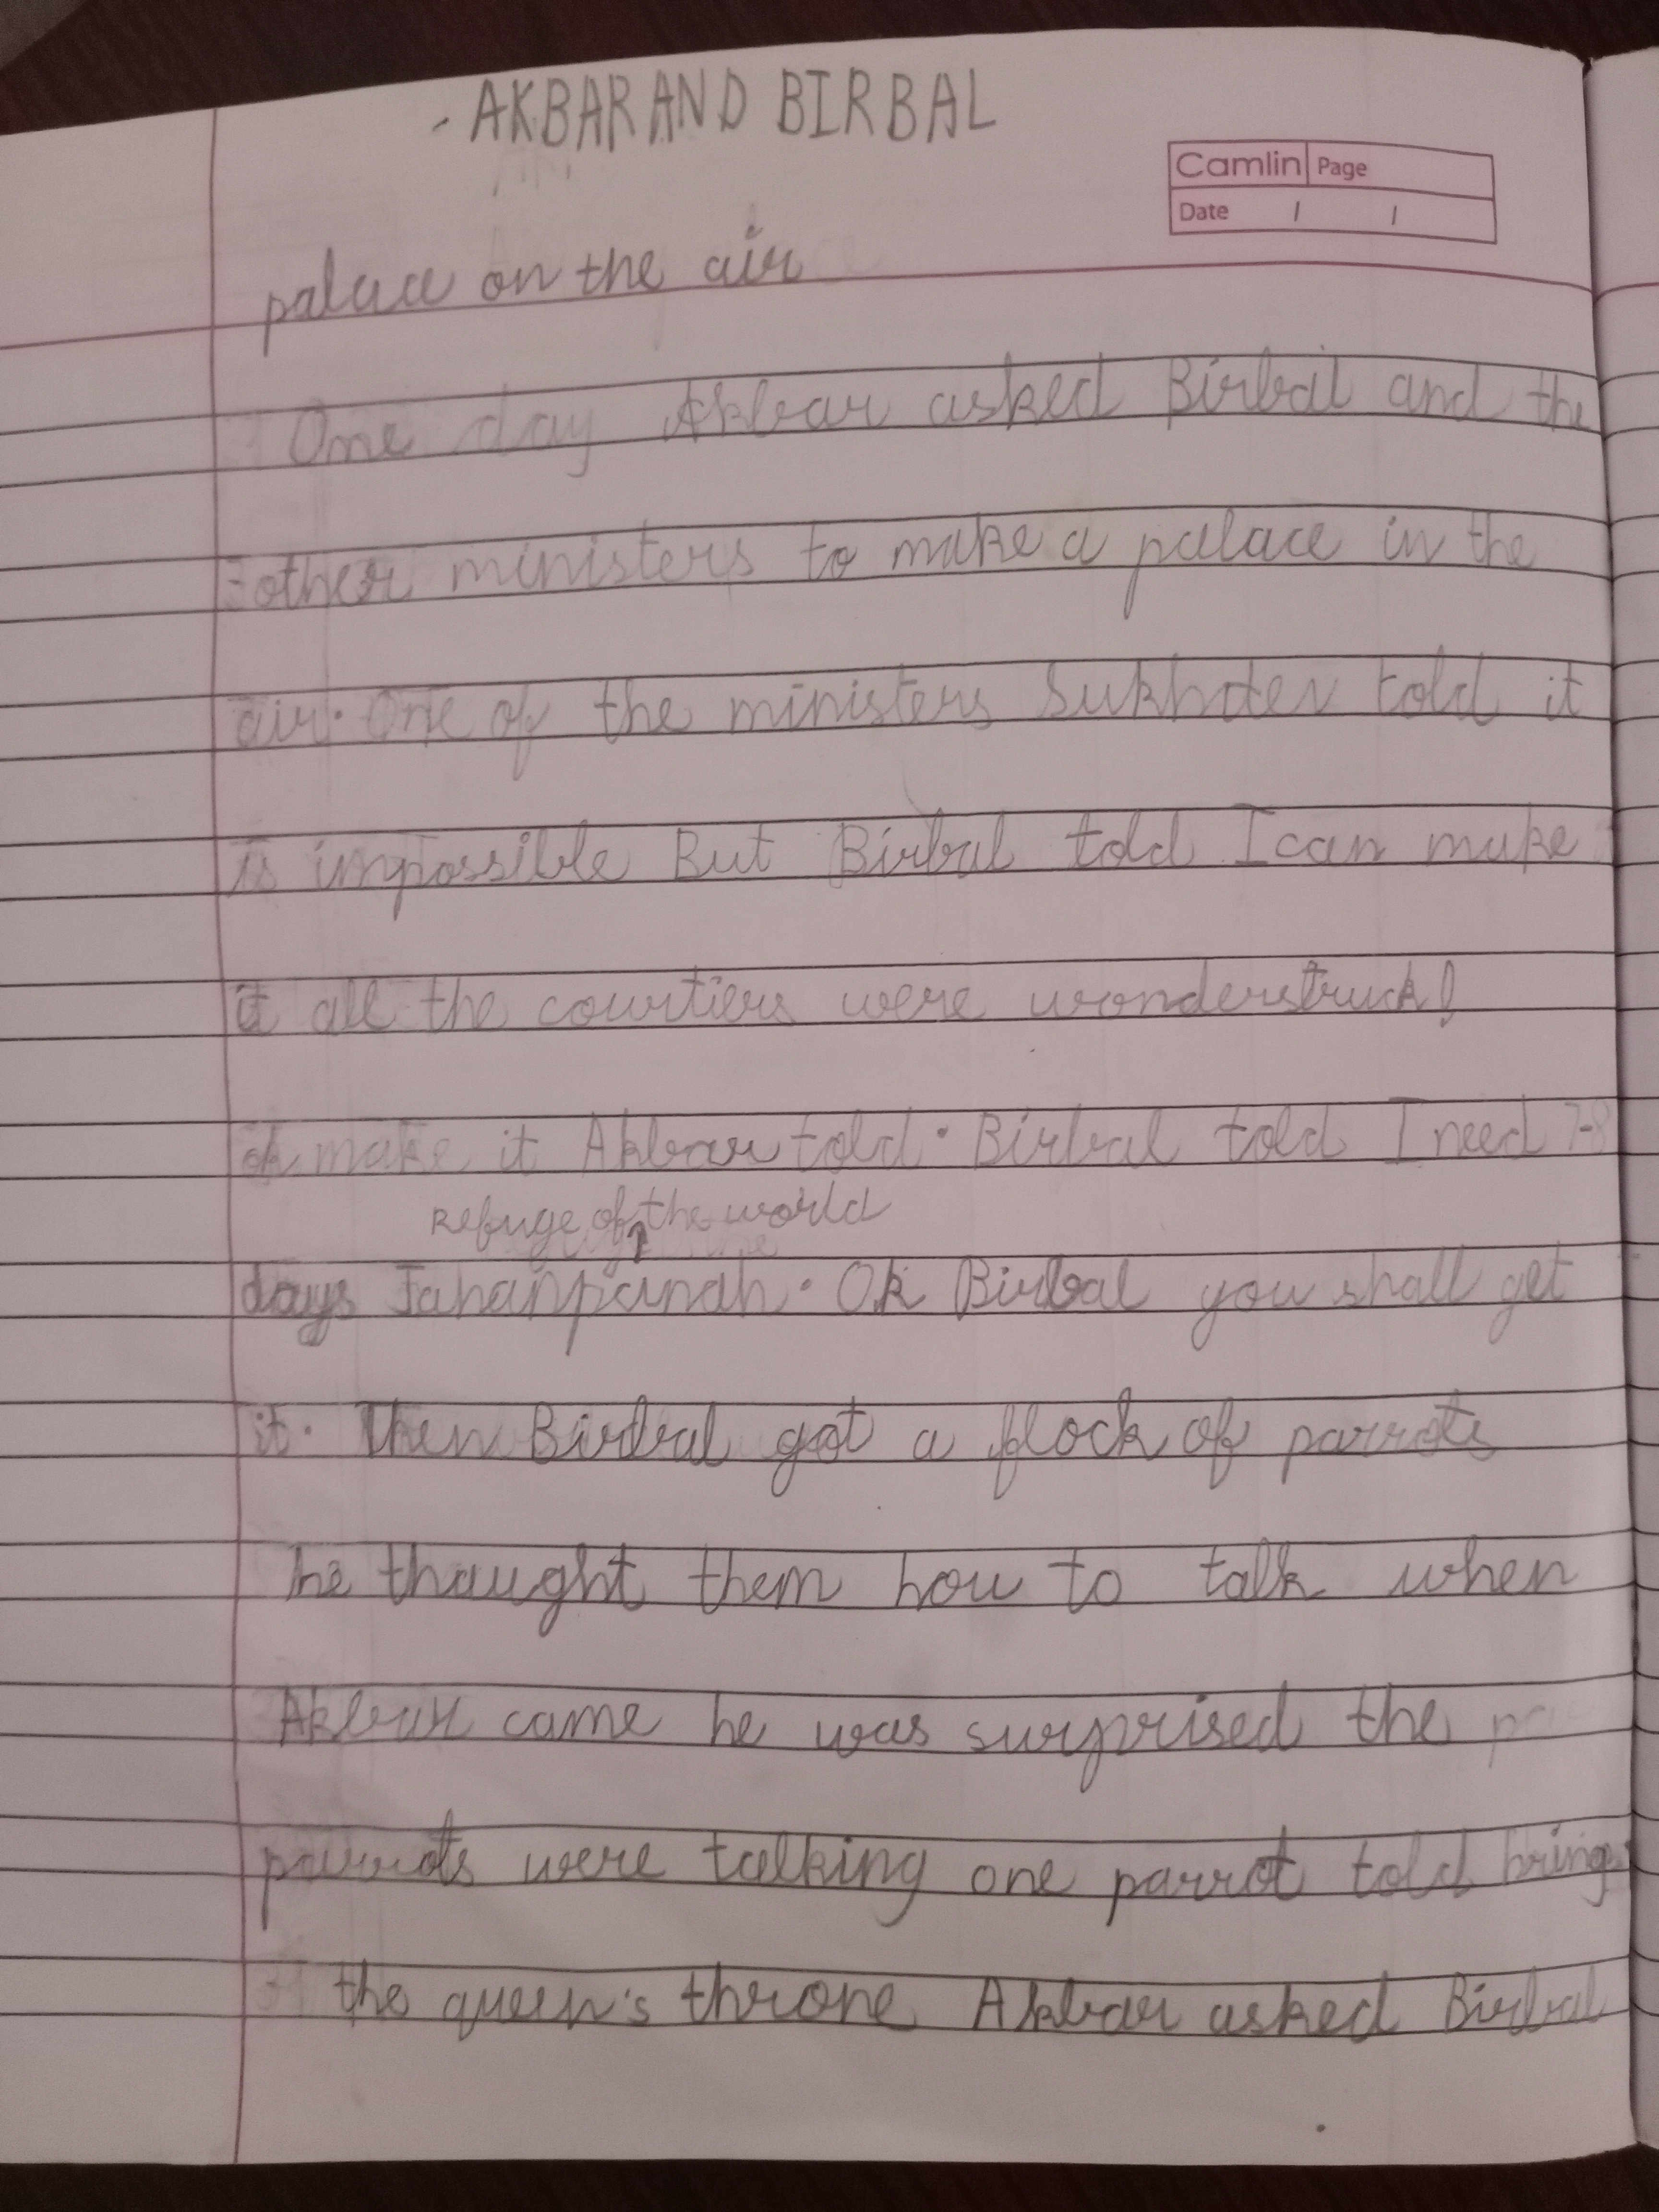 - AKBAR AND BIRBAL
Camlin Page
Date / /
palace on the air
One day Akbar asked Birbal and the
other ministers to make a palace in the
air. One of the ministers Sukhdev told it
is impossible But Birbal told I can make
it all the courtiers were wonderstruck!
ok make it Akbar told. Birbal told I need 7-8
Refuge of the world
days Jahanpanah. Ok Birbal you shall get
it. Then Birbal got a flock of parrots
he thaught them how to talk when
Akbar came he was surprised the
parrots were talking one parrot told bring
the queen's throne Akbar asked Birbal